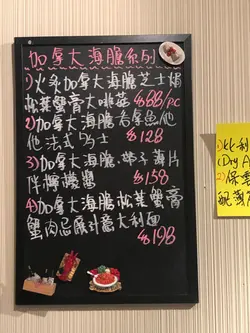 加拿大海膽系列
1)火炙加拿大海膽芝士焗
松葉蟹膏大啡菇 $88/pc
2)加拿大海膽吞拿魚他
他法式多士 $128
3)加拿大海膽帶子薄片
伴檸檬醬 $158
4)加拿大海膽松葉蟹膏
蟹肉忌廉扁意大利面
$198
1)KK利
(Dry A
2)保
配